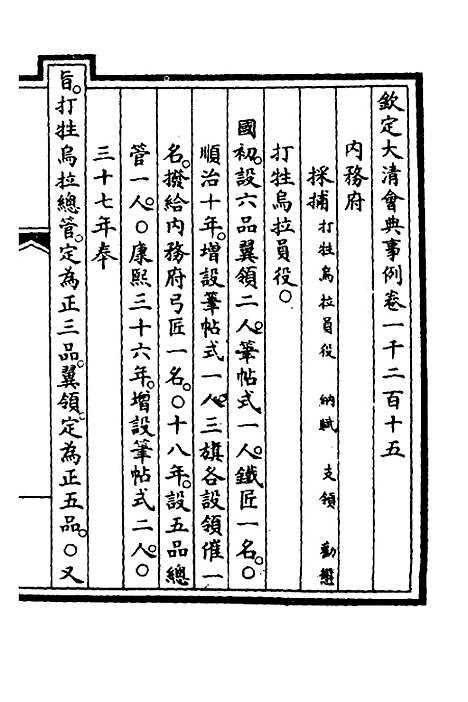 欽定大清會典事例卷一千二百十五
內務府
採捕 打牲烏拉員役 納賦 支領 勸懲
打牲烏拉員役○
國初。設六品翼領二人。筆帖式一人。鐵匠一名。○
順治十年。增設筆帖式一人。三旗各設領催一
名。撥給內務府弓匠一名。○十八年。設五品總
管一人。○康熙三十六年。增設筆帖式二人。○
三十七年奉
旨。打牲烏拉總管。定為正三品。翼領定為正五品。○又